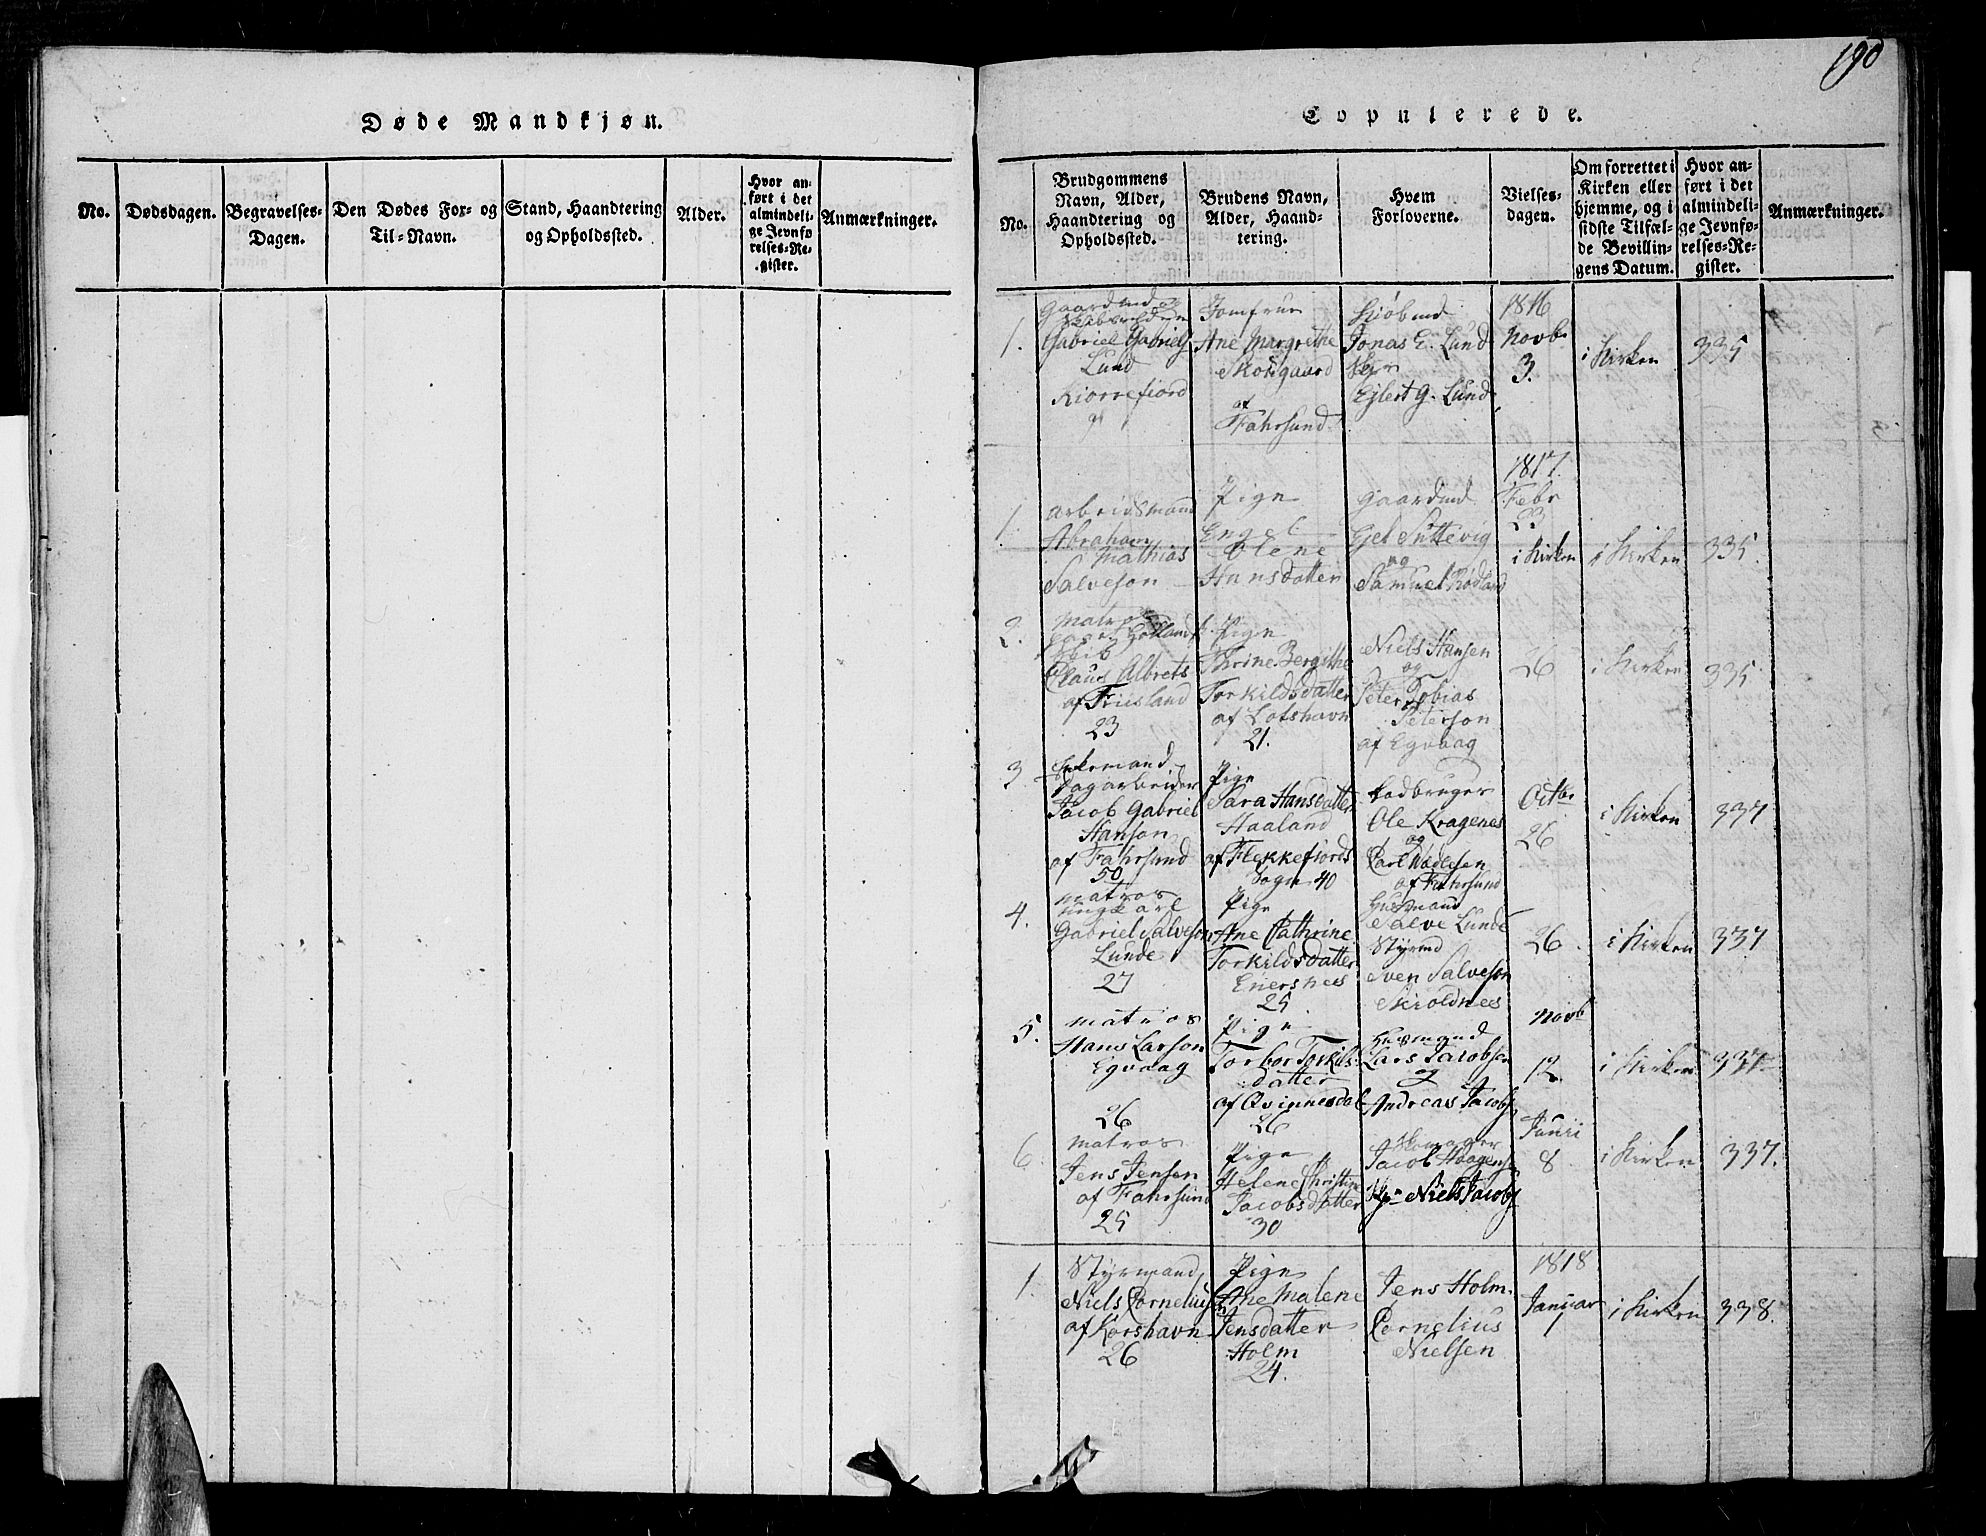 190
Døde Mandkjøn.
No.
Dødsdagen.
Begravelses-
Dagen.
Den Dødes For- og
Til-Navn.
Stand, Haandtering
og Opholdssted.
Alder.
Hvor an-
ført i det
almindeli-
ge Jevnfø-
relses-Re-
gister.
Anmærkninger.
Copulerede.
No.
Brudgommens
Navn, Alder,
Haandtering og
Opholdssted.
Brudens Navn,
Alder, Haand-
tering.
Hvem
Forloverne.
Vielses-
dagen.
Om forrettet i
Kirken eller
hjemme, og i
sidste Tilfæl-
de Bevillin-
gens Datum.
Hvor an-
ført i det
almindeli-
ge Jevnfø-
relses-Re-
gister.
Anmærkninger.
1.
Gaardmd og
Gabriel Gabriels
Lund
Kiørrefiord
Jomfrue
Ane Margrethe
Skougaard
af
Fahrsund
Kiøbmd
Jonas E. Lund
Ejlert G. Lund
1816
Novbr
3.
i Kirken
335
1817.
1.
Arbeidsmand
Abraham
Mathias
Salveson
Pige
Engel
Olene
Hansdatter
Gaardmd
Gjel Sittevig
og
Samuel Rødland
Febr
23
i Kirken
i Kirken
335.
2.
Matros
Skib
Claus Albrets
af Friesland
23
Pige
Thrine Bergithe
Torkildsdatter
af Lotshavn
21.
Niels Hansen
og
Peter Tobias
Peterson
af Egvaag
26
i Kirken
335.
3
Enkemand
Dagarbeider
Jacob Gabriel
Hanson
af Fahrsund
50
Pige
Sara Hansdatter
Haaland
af Flekkefiords
Sogn 40
Ladbruger
Ole Kragenes
og
Carl Wadesen
af Fahrsund
Octbr
26
i Kirken
337
4.
Matros
Ungkarl
Gabriel Salveson
Lunde
27
Pige
Ane Cathrine
Torkildsdatter
Enersnees
25
Husmand
Salve Lunde
Styrmd
Sven Salveson
Skioldnees
26.
i Kirken
337
5.
Matros
Hans Larson
Egvaag
26
Pige
Torbor Torkils-
datter
af Qvinnesdal
26
Husmand
Lars Jacobsen
Andreas Jacobs
Novb
12.
i Kirken
337
6.
Matros
Jens Jensen
af Fahrsund
25
Pige
Helene Christine
Jacobsdatter
30
Skomager
Jacob Haagens
Niels Jacobs
Junii
8
i Kirken
337.
1818
1.
Styrmand
Niels Cornelius
af Korshavn
26
Pige
Ane Malene
Jensdatter
Holm
24.
Jens Holm.
Cornelius
Nielsen
Januar
1
i Kirken
338.